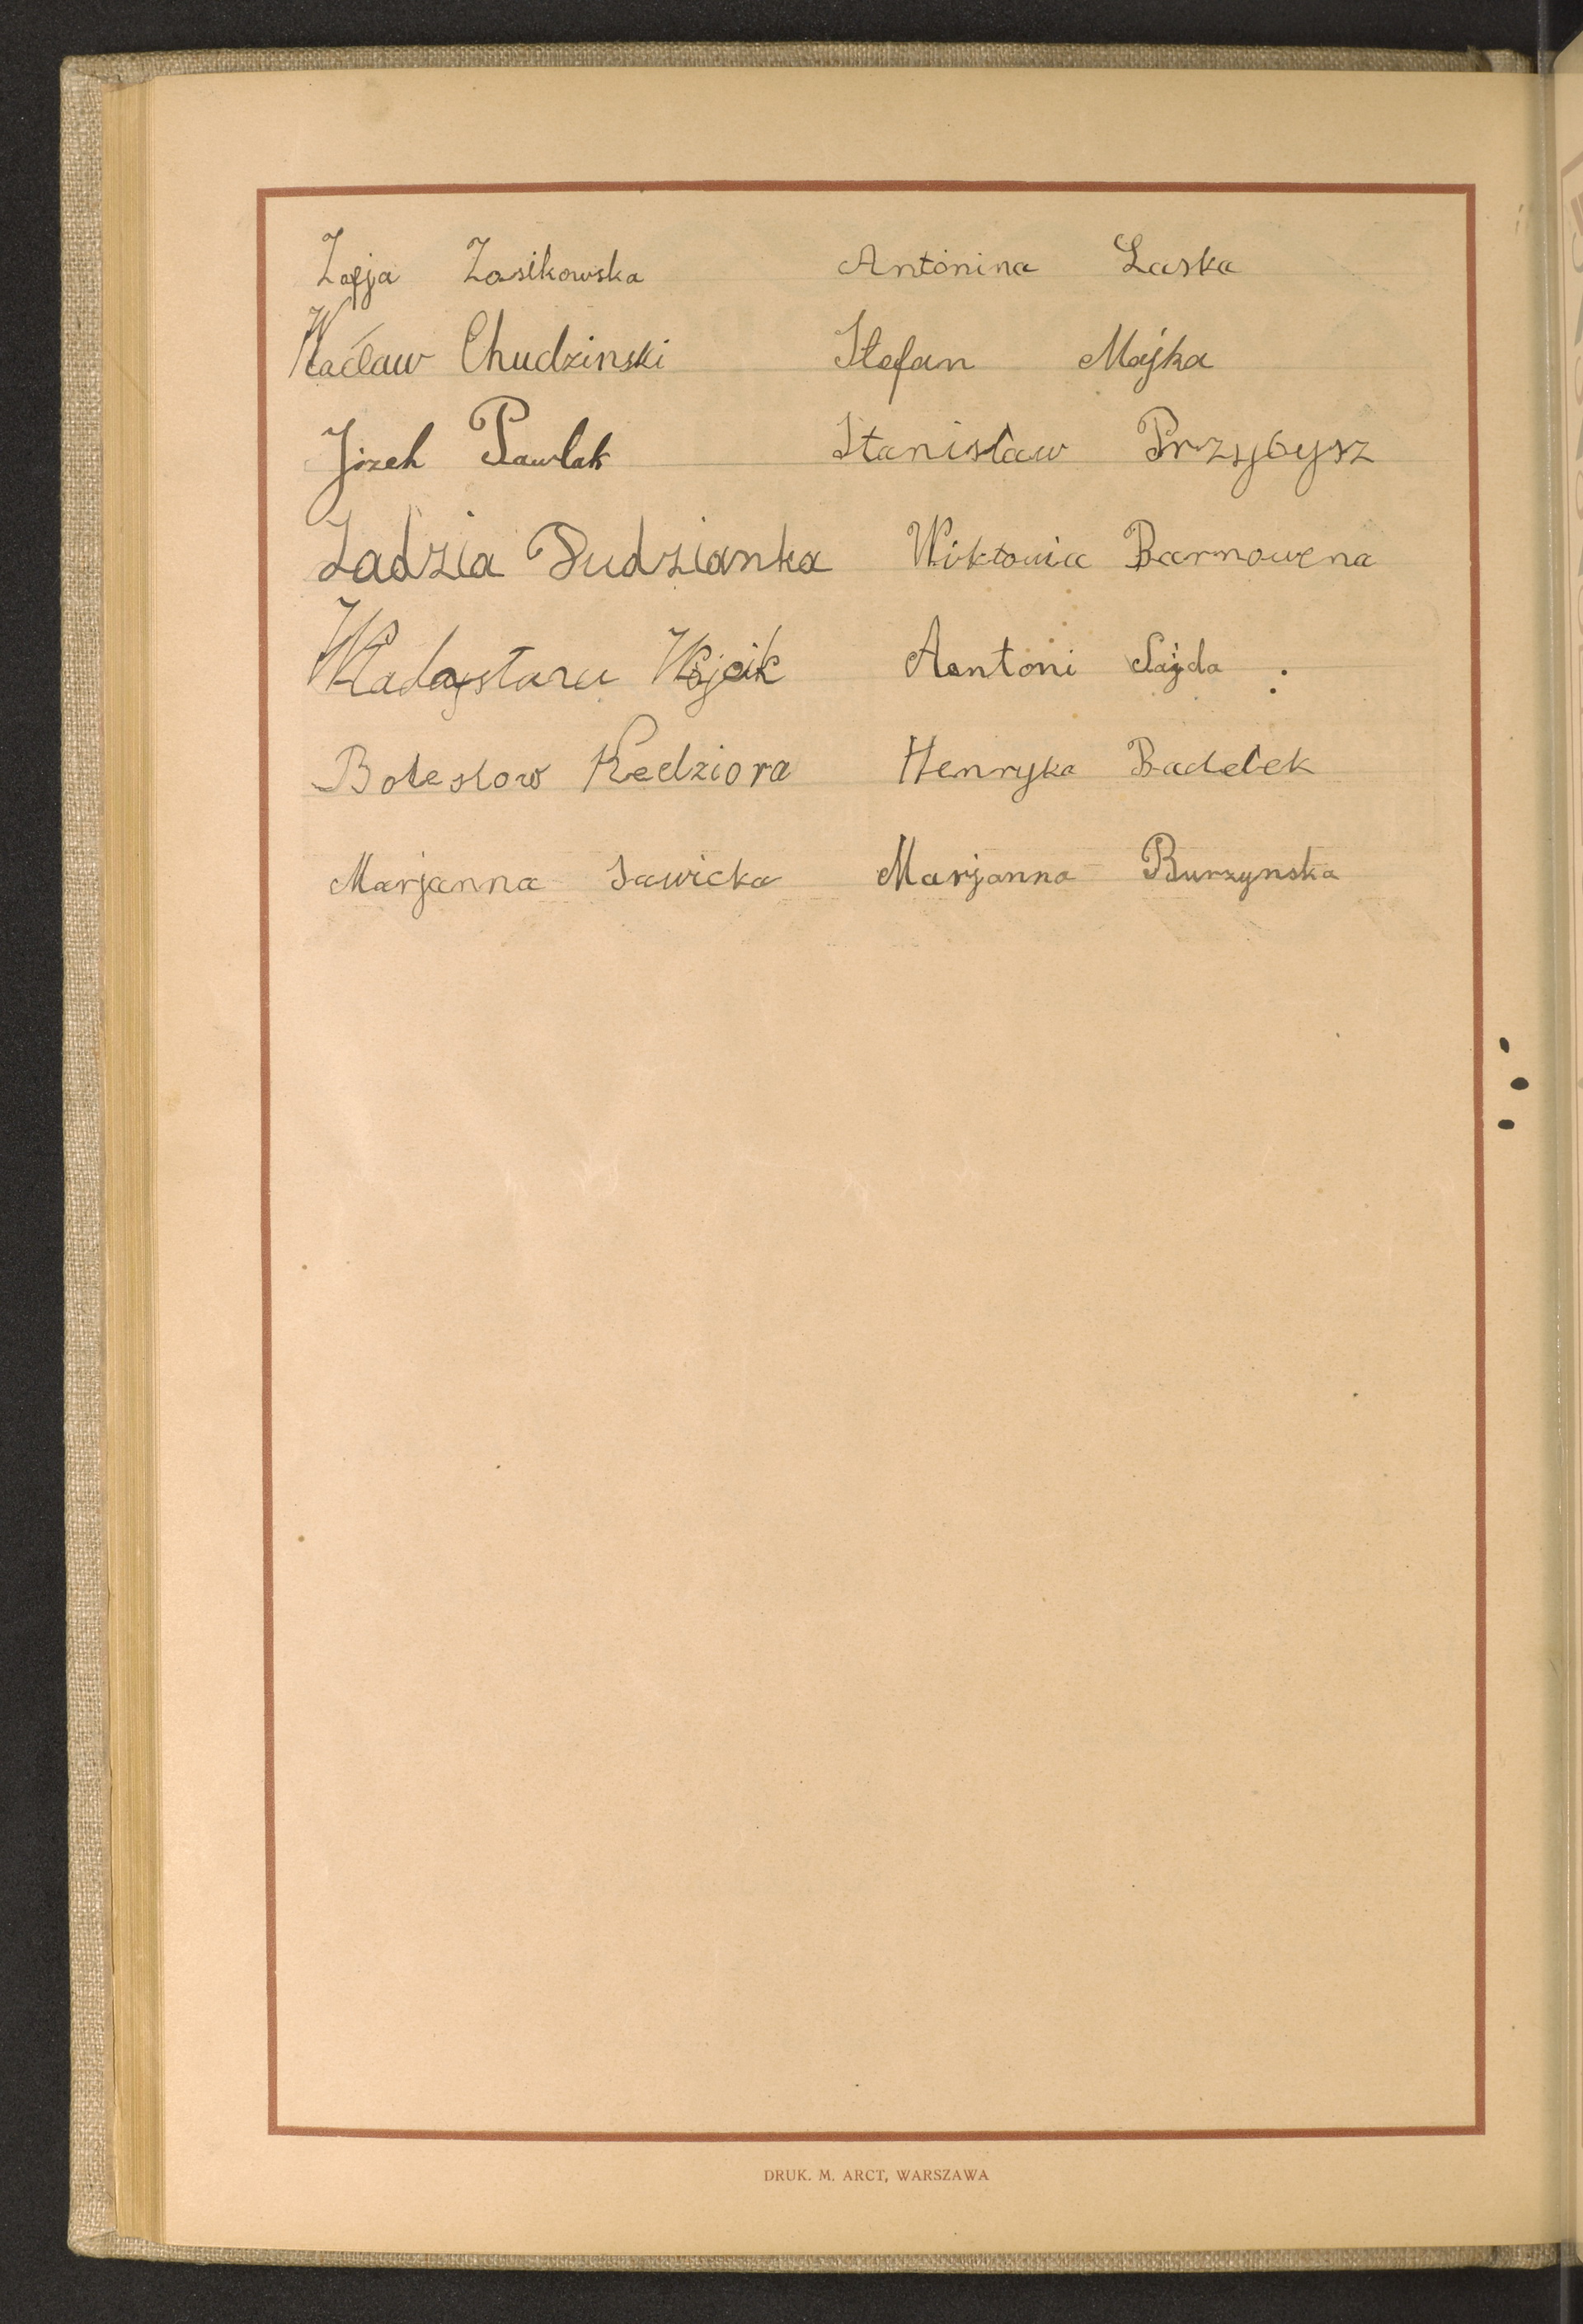 Zofja Zasikowska Antonina Laska
Wacław Chudzinski Stefan Majka
Józek Pawlak Stanisław Przybysz
Ładzia Dudzianka Wiktoria
Wójcik Aantoni Sajda
Bolesłow Kedziora Henryka Badelek
Marjanna Sawicka Marjanna Burzynska
DRUK. M. ARCT, WARSZAWA